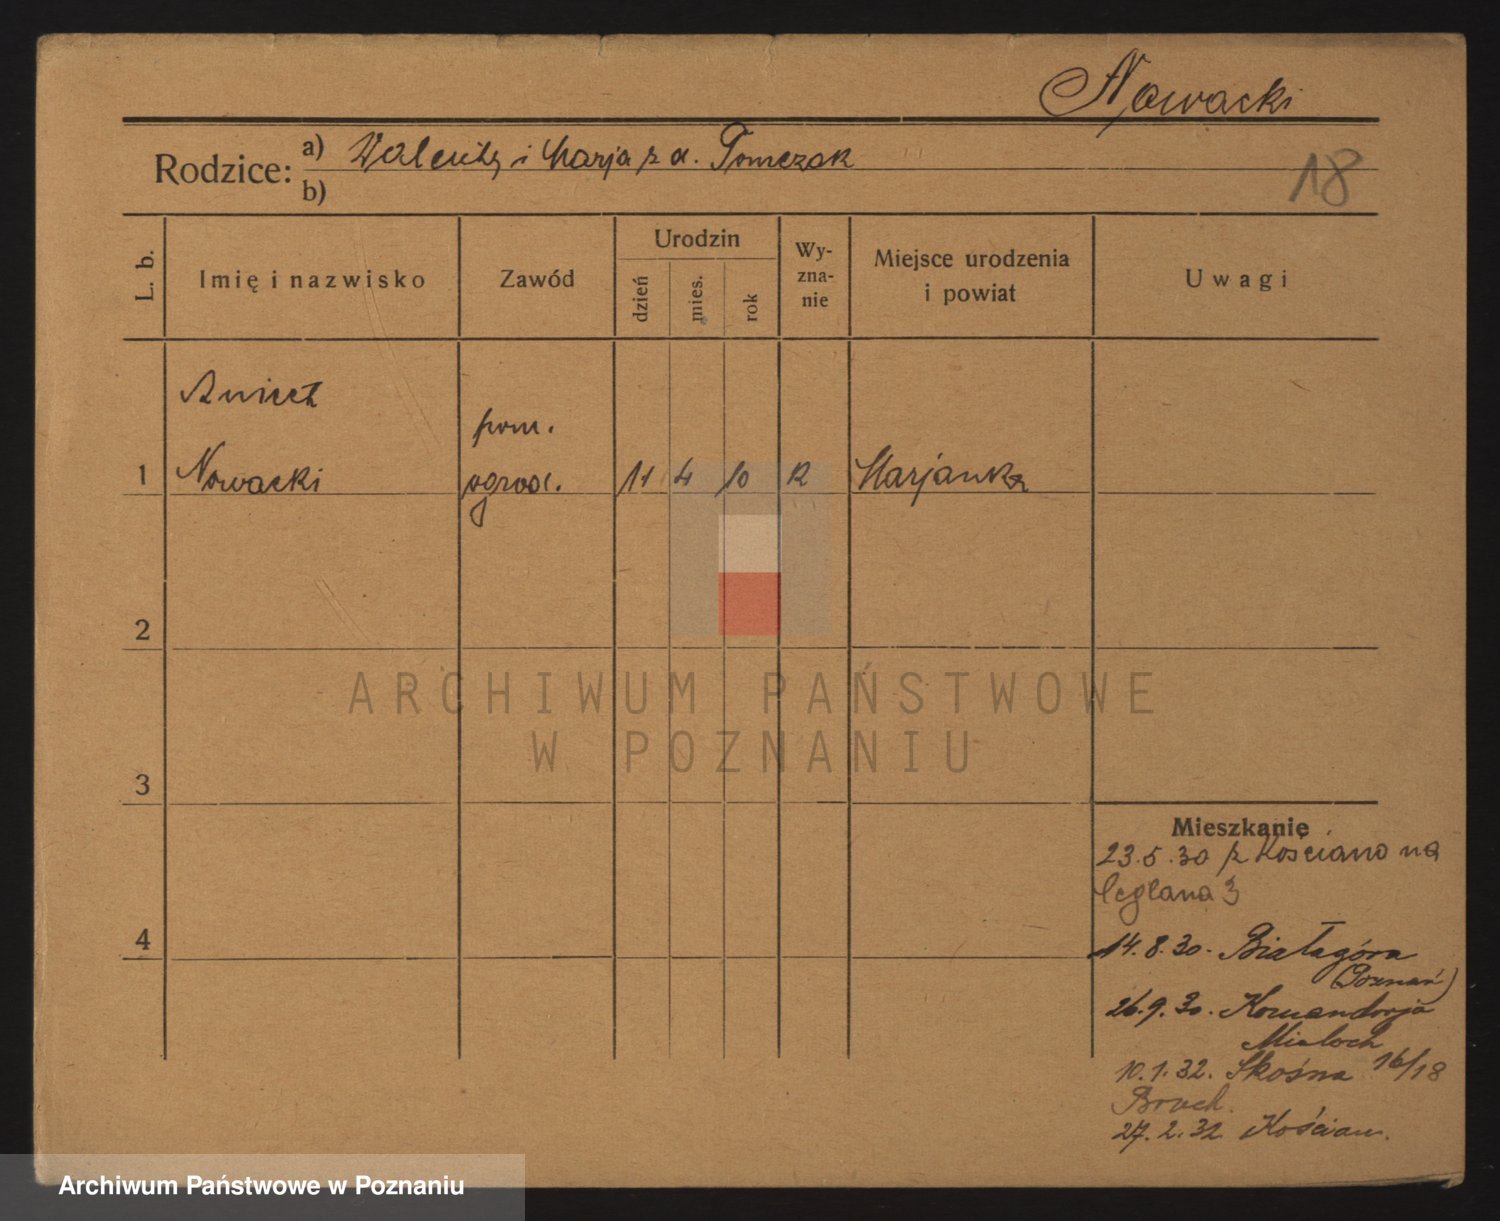 Nowacki
Rodzice: a) Walenty i Marja z d. Tomczak
b)
18
L. b. Imię i nazwisko Zawód Urodzin dzień mies. rok Wy-zna-nie Miejsce urodzenia i powiat Uwagi
pom.
1 Nowacki ogrod. 11 4 10 R Marjanka
2
ARCHIWUM PAŃSTWOWE
W POZNANIU
3
Mieszkanie
23.5.30 z Kościana na
Ceglana 3
4
14.8.30. Białagóra
(Poznań)
26.9.30. Komandorja
Mialoch
10.1.32. Skośna 16/18
27.2.32 Kościan.
Archiwum Państwowe w Poznaniu